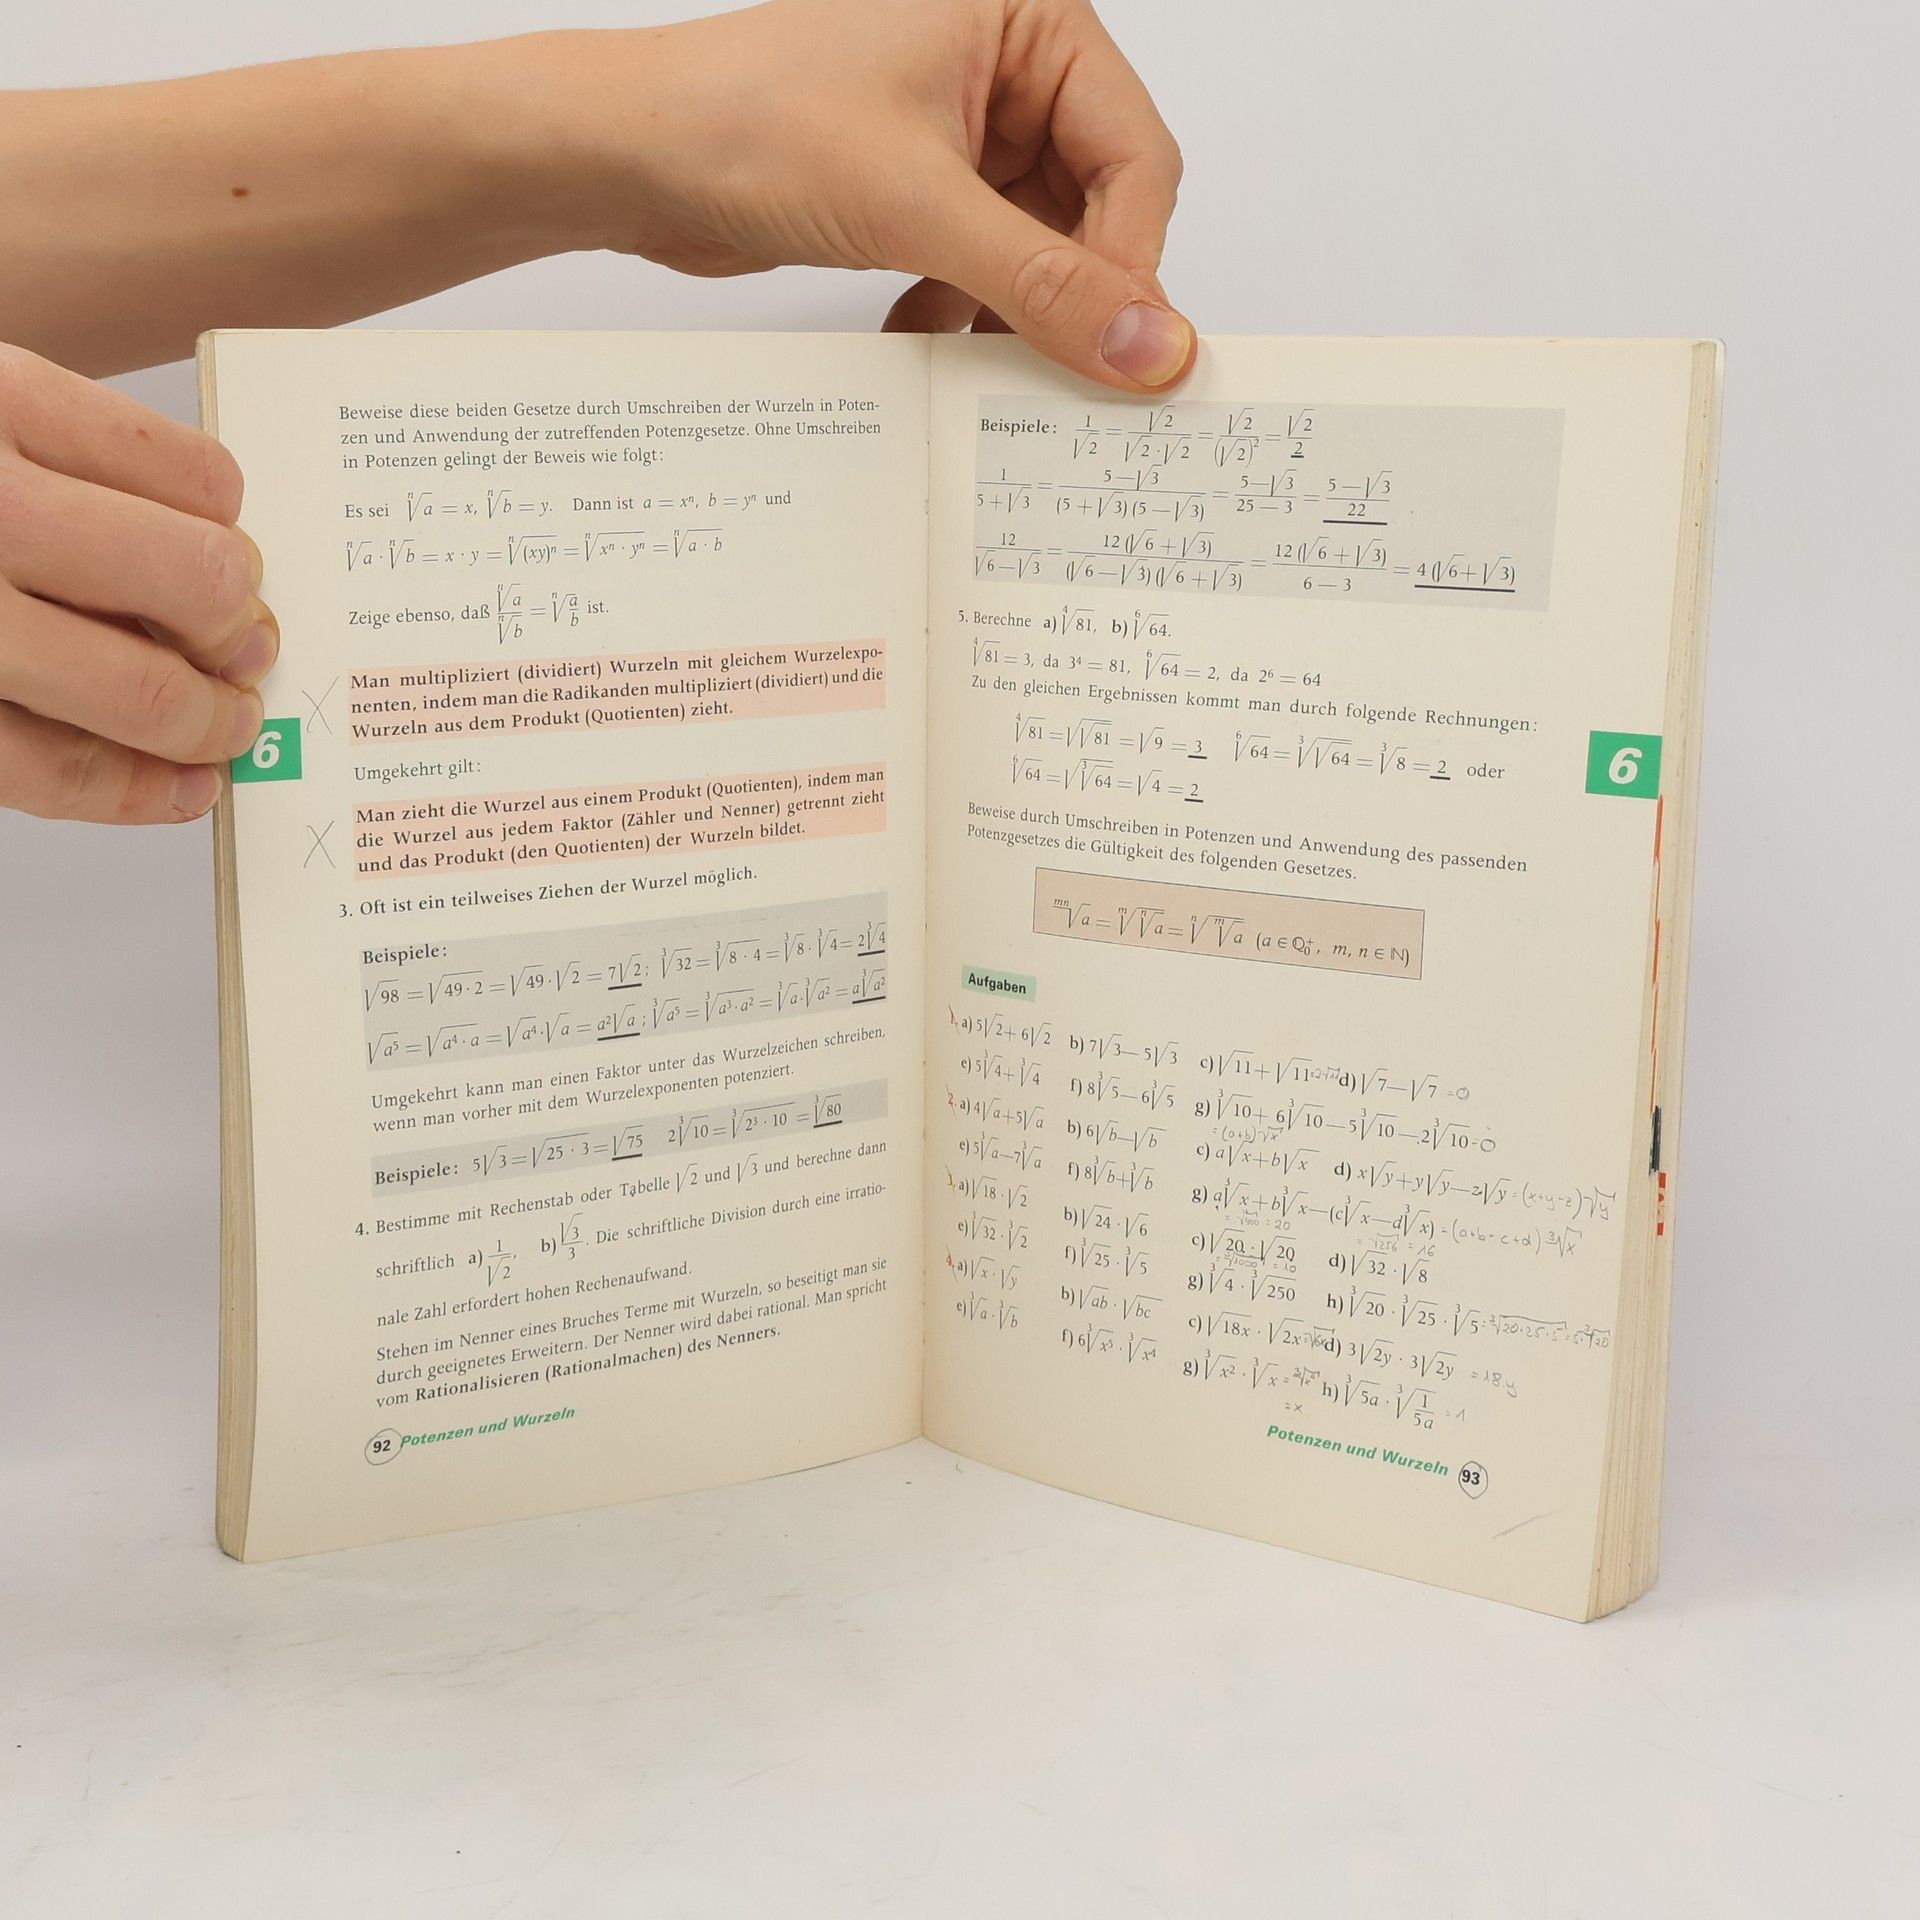 Beweise diese beiden Gesetze durch Umschreiben der Wurzeln in Poten-
zen und Anwendung der zutreffenden Potenzgesetze. Ohne Umschreiben
in Potenzen gelingt der Beweis wie folgt:
Es sei ⁿ√a = x, ⁿ√b = y. Dann ist a = xⁿ, b = yⁿ und
ⁿ√a · ⁿ√b = x · y = ⁿ√(xy)ⁿ = ⁿ√(xⁿ · yⁿ) = ⁿ√(a · b)
Zeige ebenso, daß ⁿ√a/ⁿ√b = ⁿ√(a/b) ist.
Man multipliziert (dividiert) Wurzeln mit gleichem Wurzelexpo-
nenten, indem man die Radikanden multipliziert (dividiert) und die
Wurzeln aus dem Produkt (Quotienten) zieht.
6
Umgekehrt gilt:
Man zieht die Wurzel aus einem Produkt (Quotienten), indem man
die Wurzel aus jedem Faktor (Zähler und Nenner) getrennt zieht
und das Produkt (den Quotienten) der Wurzeln bildet.
3. Oft ist ein teilweises Ziehen der Wurzel möglich.
Beispiele:
√98 = √(49 · 2) = √49 · √2 = 7√2; ³√32 = ³√(8 · 4) = ³√8 · ³√4 = 2³√4
√a⁵ = √(a⁴ · a) = √a⁴ · √a = a²√a; ³√a⁵ = ³√(a³ · a²) = ³√a · ³√a² = a³√a²
Umgekehrt kann man einen Faktor unter das Wurzelzeichen schreiben,
wenn man vorher mit dem Wurzelexponenten potenziert.
Beispiele: 5√3 = √(25 · 3) = √75 2³√10 = ³√(2³ · 10) = ³√80
4. Bestimme mit Rechenstab oder Tabelle √2 und √3 und berechne dann
schriftlich a) 1/√2, b) √3/3. Die schriftliche Division durch eine irratio-
nale Zahl erfordert hohen Rechenaufwand.
Stehen im Nenner eines Bruches Terme mit Wurzeln, so beseitigt man sie
durch geeignetes Erweitern. Der Nenner wird dabei rational. Man spricht
vom Rationalisieren (Rationalmachen) des Nenners.
92 Potenzen und Wurzeln
Beispiele: 1/√2 = √2/(√2 · √2) = √2/(√2)² = √2/2
1/(5 + √3) = (5 − √3)/((5 + √3)(5 − √3)) = (5 − √3)/(25 − 3) = (5 − √3)/22
12/(√6 − √3) = 12(√6 + √3)/((√6 − √3)(√6 + √3)) = 12(√6 + √3)/(6 − 3) = 4(√6 + √3)
5. Berechne a) ⁴√81, b) ⁶√64.
⁴√81 = 3, da 3⁴ = 81, ⁶√64 = 2, da 2⁶ = 64
Zu den gleichen Ergebnissen kommt man durch folgende Rechnungen:
⁴√81 = √√81 = √9 = 3 ⁶√64 = ³√√64 = ³√8 = 2 oder
⁶√64 = √³√64 = √4 = 2
6
Beweise durch Umschreiben in Potenzen und Anwendung des passenden
Potenzgesetzes die Gültigkeit des folgenden Gesetzes.
ᵐⁿ√a = ᵐ√ⁿ√a = ⁿ√ᵐ√a (a ∈ ℚ₀⁺, m, n ∈ ℕ)
Aufgaben
1. a) 5√2 + 6√2 b) 7√3 − 5√3 c) √11 + √11 =2·√11 d) √7 − √7 =0
e) 5³√4 + ³√4 f) 8³√5 − 6³√5 g) ³√10 + 6³√10 − 5³√10 − 2³√10 =0
=(a+b)·√x
2. a) 4√a + 5√a b) 6√b − √b c) a√x + b√x d) x√y + y√y − z√y =(x+y−z)·√y
e) 5³√a − 7³√a f) 8³√b + ³√b g) a³√x + b³√x − (c³√x − d³√x) =(a+b−c+d) ³√x
=√400 = 20 =√256 = 16
3. a) √18 · √2 b) √24 · √6 c) √20 · √20 d) √32 · √8
=³√1000 = 10
e) ³√32 · ³√2 f) ³√25 · ³√5 g) ³√4 · ³√250 h) ³√20 · ³√25 · ³√5 =³√20·25·5 =5·³√20
4. a) √x · √y b) √ab · √bc c) √18x · √2x =√6x d) 3√2y · 3√2y =18·y
e) ³√a · ³√b f) 6³√x⁵ · ³√x⁴ g) ³√x² · ³√x =³√x³ h) ³√5a · ³√(1/5a) =1
=x
Potenzen und Wurzeln 93